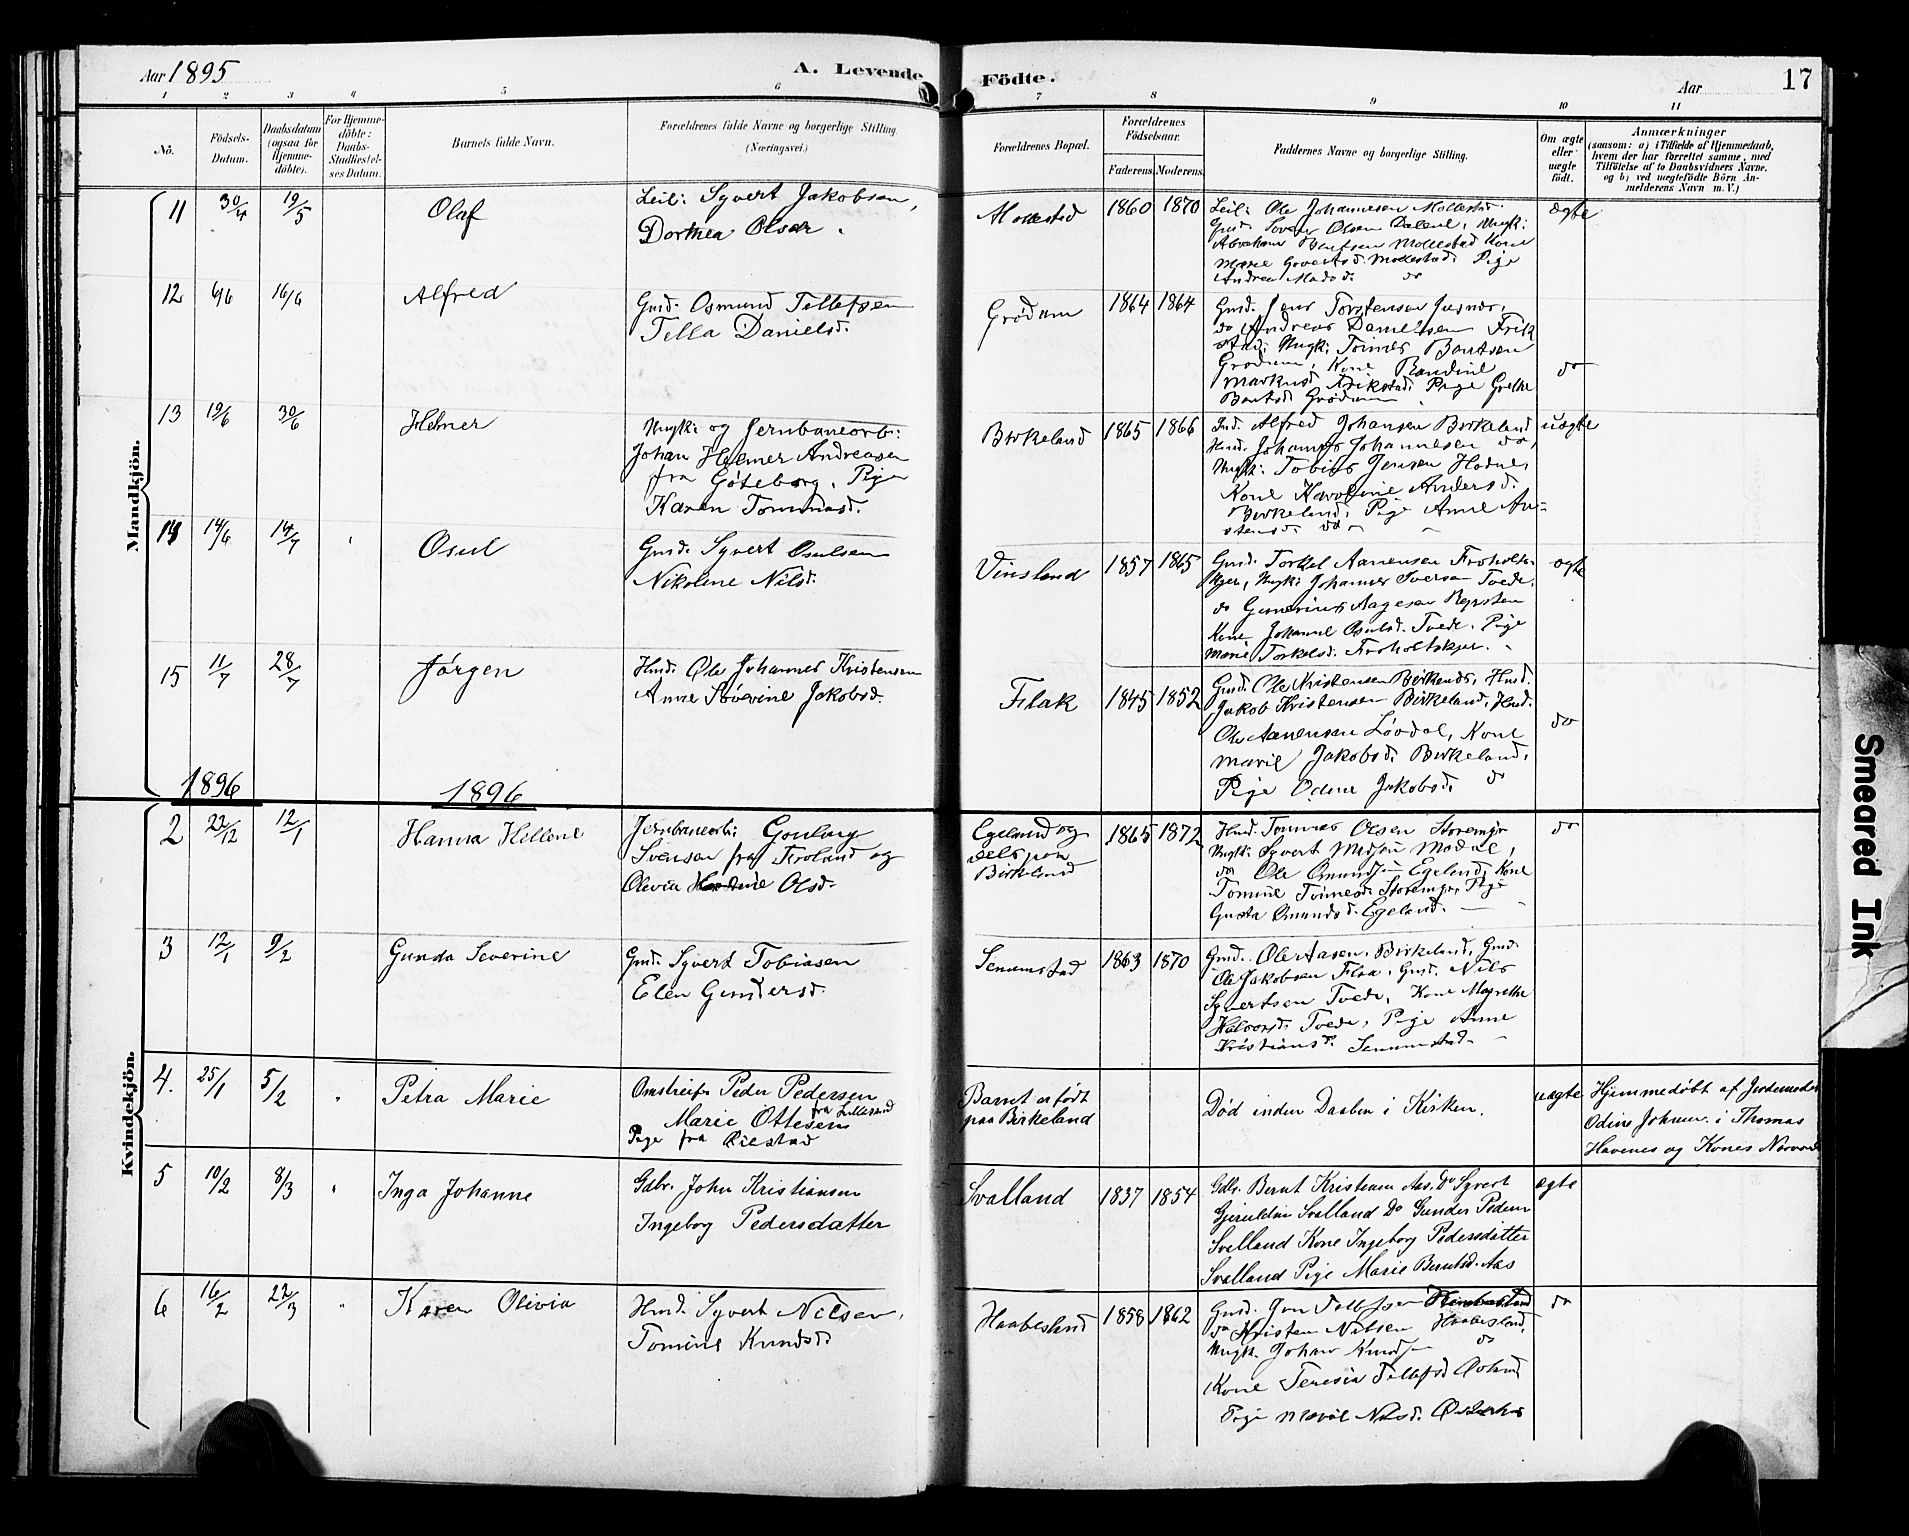 Aar 1895
A. Levende Födte.
Aar
17
1 2 3 4 5 6 7 8 9 10 11
No.
Födsels-
Datum.
Daabsdatum
(ogsaa for
Hjemme-
döbte).
For Hjemme-
döbte:
Daabs-
Stadfæstel-
ses Datum.
Barnets fulde Navn.
Forældrenes fulde Navne og borgerlige Stilling.
(Næringsvei.)
Forældrenes Bopæl.
Forældrenes
Födselsaar.
Faderens
Moderens
Faddernes Navne og borgerlige Stilling.
Om ægte
eller
uægte
födt.
Anmærkninger
(saasom: a) i Tilfælde af Hjemmedaab,
hvem der har forrettet samme, med
Tilföielse af to Daabsvidners Navne.
og b) ved uægtefödte Börn An-
melderens Navn m. V.)
Mandkjön.
11 30/4 19/5 Olaf
Leil: Syvert Jakobsen,
Dorthea Olsdr.
Mollestad 1860 1870
Leil: Ole Johannesen Mollestad
Olsen Dalene, Ungk:
Abraham Berntsen Mollestad Kone
Marie Mollestad. Pige
Andrea do
ægte
12 6/6 16/6 Alfred
Gmd. Osmund Tellefsen
Tella Danielsd.
Grödum 1864 1864
Gmd. Jens Torstensen
do Andreas Danielsen Frik
stad: Ungk: Tönnes Berntsen
Grödum, Kone
Markusd Frikstad, Pige Grethe
Berntsd Grödum
do
13 19/6 30/6 Helmer
Ungk: og Jernbanearb:
Johan Helmer Andreasen
fra Göteborg, Pige
Karen Tommasd.
Birkeland 1865 1866
Ind. Alfred Johansen Birkeland
Hmd. Johannes Johannesen do,
Ungk: Tobias Jensen Hodne,
Kone Karoline Andersd.
Birkeland, Pige Anne Au-
stensd. do
uægte
14 14/6 14/7 Osul
Gmd. Syvert Osulsen
Nikoline Nilsd.
Vinsland 1857 1865
Gmd. Torkel Aanensen Froholts-
kjer, Ungk: Johannes Iversen Tvede,
do Gunerius Aagesen Røysten
Kone Johanne Osulsd. Tvede. Pige
Marie Torkelsd. Froholtskjer.
ægte
15 11/7 28/7 Jörgen
Hmd. Ole Johannes Kristensen
Anne Sövrine Jakobsd.
Flak 1845 1852
Gmd. Ole Kristensen Birkeland, Hmd.
Jakob Kristensen Birkeland, Hmd.
Ole Aanensen Lövdal, Kone
Marie Jakobsd. Birkeland,
Pige Odine Jakobsd. do
do
1896 1896
Kvindekjön.
2 22/12 12/1 Hanna Hillene
Jernbanearb:
Svensen fra Froland og
Olevia Olsd.
Egeland og
dels paa
Birkeland
1865 1872
Hmd. Tommas Olsen Storemyr
Ungk: Syvert
do Ole Omundsen Egeland, Kone
Tomine Tönnesd. Storemyr, Pige
Gusta Omundsd. Egeland.
do
3 12/1 9/2 Gunda Severine
Gmd. Syvert Tobiasen
Elen Gundersd.
Senumstad 1863 1870
Gmd. Ole Aasen, Birkeland, Gmd.
Ole Jakobsen Flaa, Gmd. Nils
Syvertsen Tvede, Kone Magrethe
Halvorsd. Tvede, Pige Anne
Kristiansd. Senumstad.
4. 25/1 5/2 " Petra Marie
Omstreifer Peder Pedersen
fra Lillesand
Marie Ottesen
Pige fra Öiestad
Barnet er født
paa Birkeland
Død inden Daaben i Kirken.
uægte
Hjemmedøbt af Jordemoder
Odine Johnsen i Thomas
Havenes og Kones Nærværelse
5 10/2 8/3 " Inga Johanne
Gdbr. John Kristiansen
Ingeborg Pedersdatter
Svalland 1837 1854
Gdbr. Bernt Kristensen Aas, Do Syvert
Gjeruldsen Svalland Do Gunder Pedersen
Svalland Kone Ingeborg Pedersdatter
Svalland Pige Marie Berntsd. Aas
ægte
6 16/2 22/3 " Karen Olivia
Hmd. Syvert Nilsen,
Tomine Knudsd.
Haabesland 1858 1862
Gmd. Jon Tellefsen
do Kristen Nilsen Haabesland,
Ungk. Johan Knudsen do
Kone Teresia Tellefsd
Pige Nilsd.
do
Smeared Ink